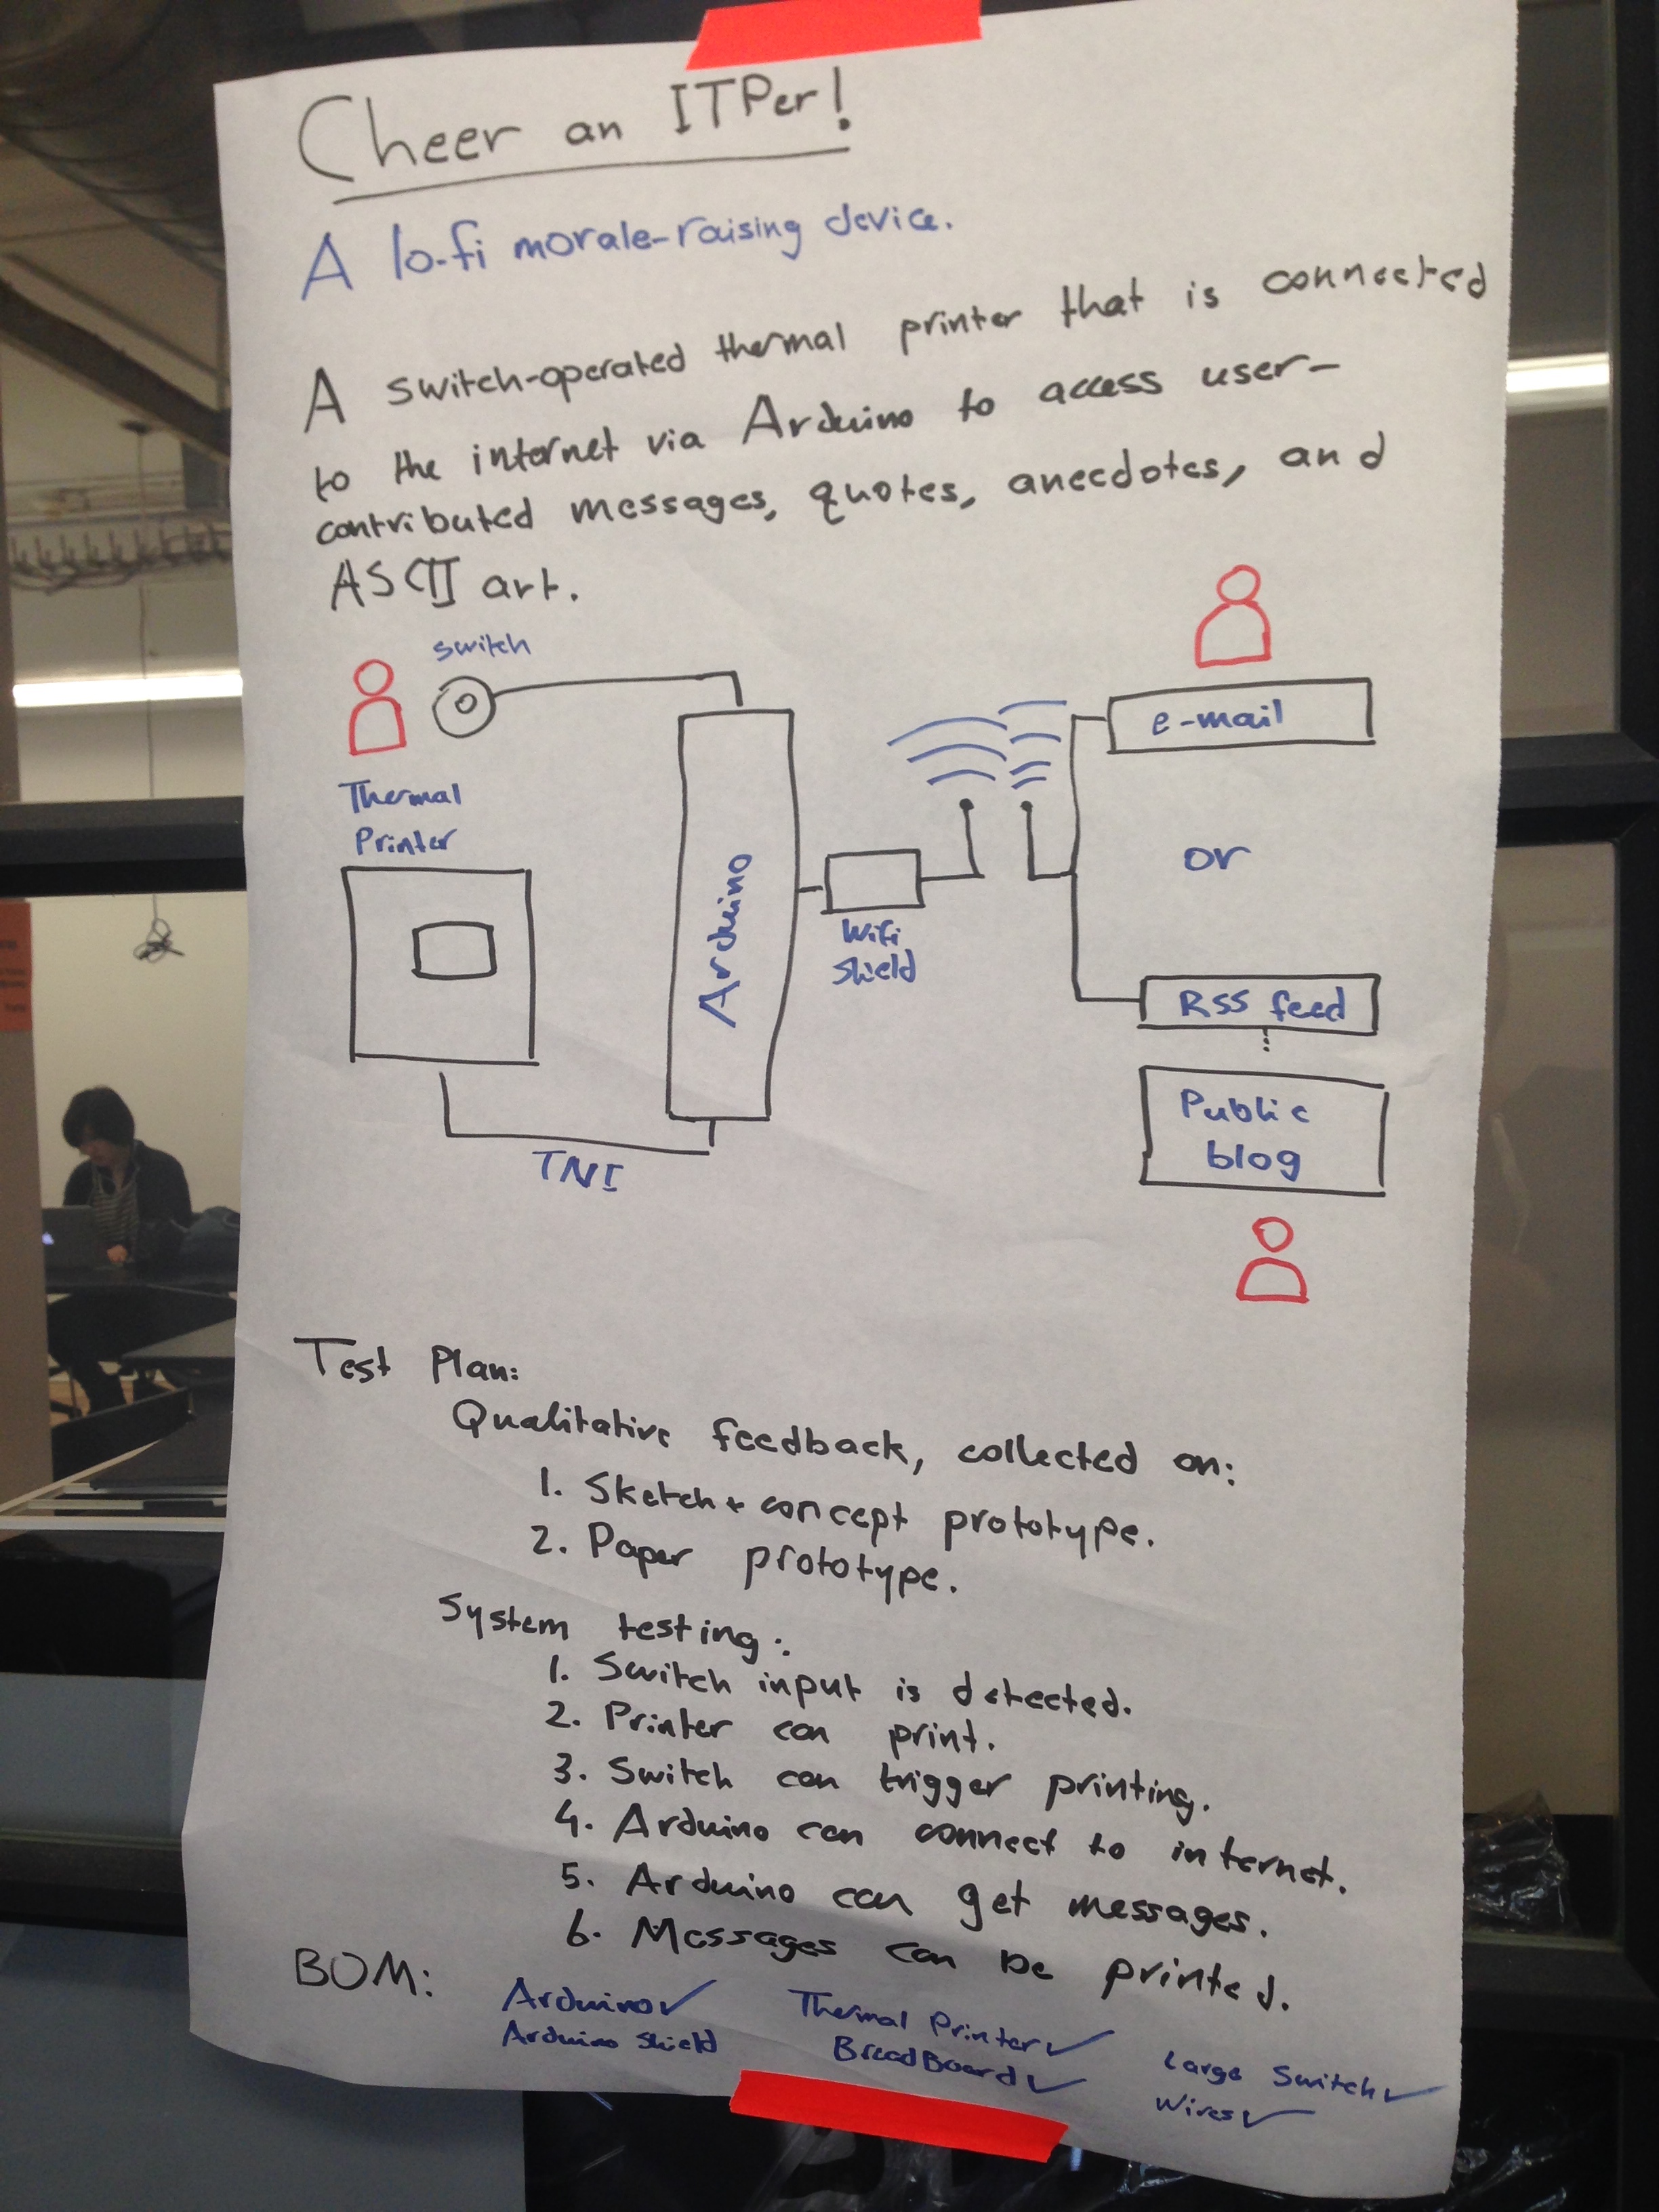 Cheer an ITPer!
A lo-fi morale-raising device.
A switch-operated thermal printer that is connected
to the internet via Arduino to access user-
contributed messages, quotes, anecdotes, and
ASCII art.
switch
Thermal
Printer
Arduino
Wifi
Shield
e-mail
or
RSS feed
Public
blog
Test Plan:
Qualitative feedback, collected on:
1. Sketch + concept prototype.
2. Paper prototype.
System testing:
1. Switch input is detected.
2. Printer can print.
3. Switch can trigger printing.
4. Arduino can connect to internet.
5. Arduino can get messages.
6. Messages can be printed.
BOM:
Arduino ✓
Arduino Shield
Thermal Printer ✓
BreadBoard ✓
Large Switch ✓
Wires ✓